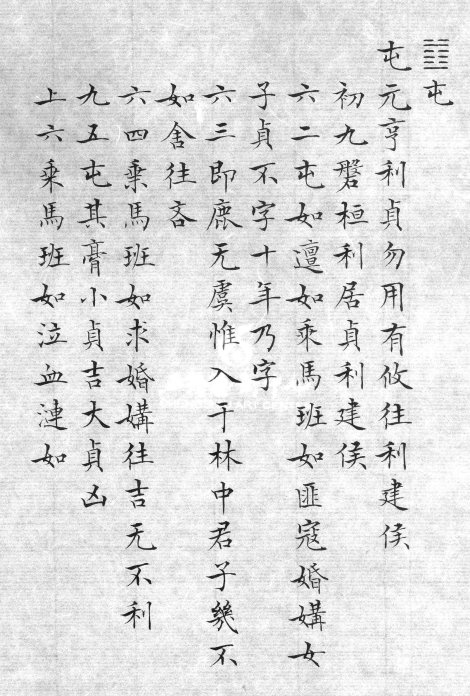 ䷂屯
屯元亨利貞勿用有攸往利建侯
初九磐桓利居貞利建侯
六二屯如邅如乘馬班如匪寇婚媾女
子貞不字十年乃字
六三即鹿无虞惟入于林中君子幾不
如舍往吝
六四乘馬班如求婚媾往吉无不利
九五屯其膏小貞吉大貞凶
上六乘馬班如泣血漣如